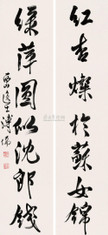 紅杏燦於蘇女錦
綠萍圓似沈郎錢
西山逸士溥儒